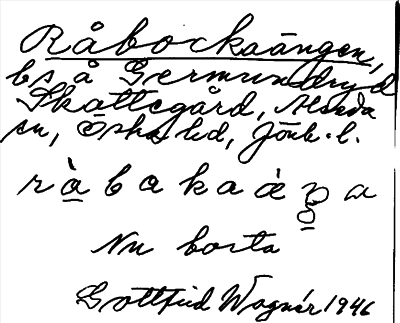 Råbockaängen,
bs å Germundryd
Skattegård, Alseda
sn, Östra hd, Jönk. l.
ràbakaáŋa
Nu borta
Gottfrid Wagnér 1946